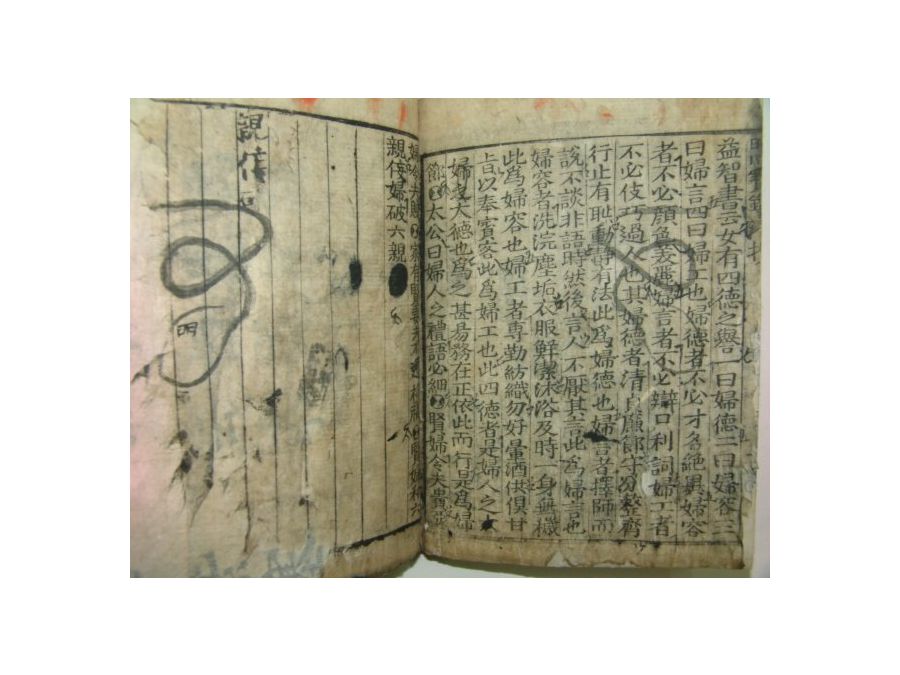 益智書云女有四德之譽一曰婦德二曰婦容三
曰婦言四曰婦工也婦德者不必才名絶異婦容
者不必顔色美麗婦言者不必辯口利詞婦工者
不必伎巧過也其婦德者清貞廉節守分整齊
行止有恥動靜有法此爲婦德也婦言者擇師而
說不談非語時然後言人不厭其言此爲婦言也
婦容者洗浣塵垢衣服鮮潔沐浴及時一身無穢
此爲婦容也婦工者專勤紡織勿好暈酒供俱甘
旨以奉賓客此爲婦工也此四德者是婦人之大
婦之大德也爲之甚易務在正依此而行是爲婦
節 太公曰婦人之禮語必細 賢婦令夫貴
婦令夫賤 家有賢妻夫不遭橫禍 賢婦和六
親佞婦破六親
親佞
明